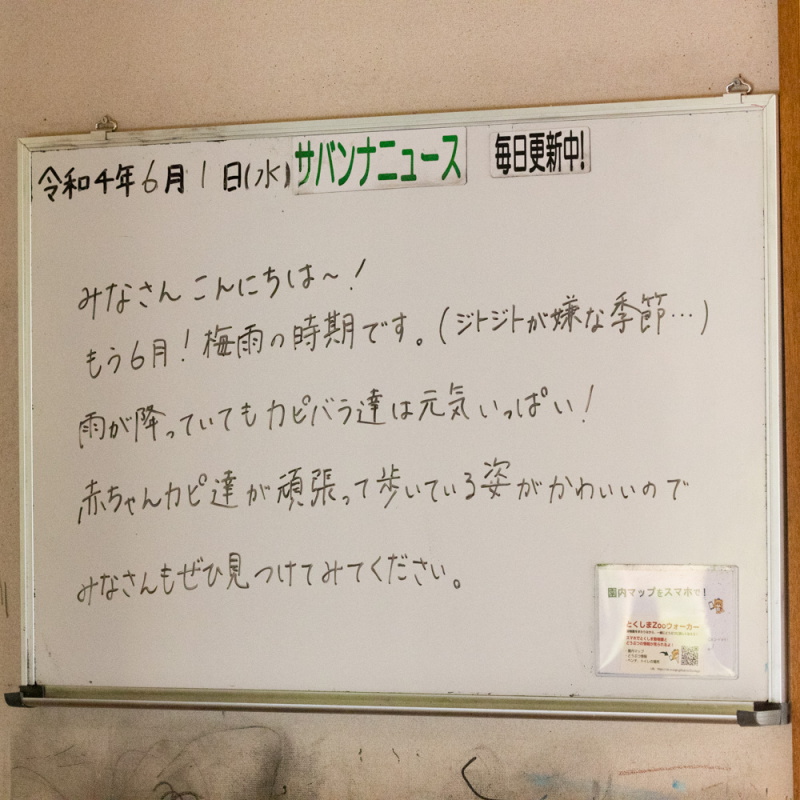 令和4年6月1日(水) サバンナニュース 毎日更新中!
みなさん こんにちは～!
もう6月!梅雨の時期です。(ジトジトが嫌な季節…)
雨が降っていてもカピバラ達は元気いっぱい!
赤ちゃんカピ達が頑張って歩いている姿がかわいいので
みなさんもぜひ見つけてみてください。
園内マップをスマホで!
とくしまZooフォーカー